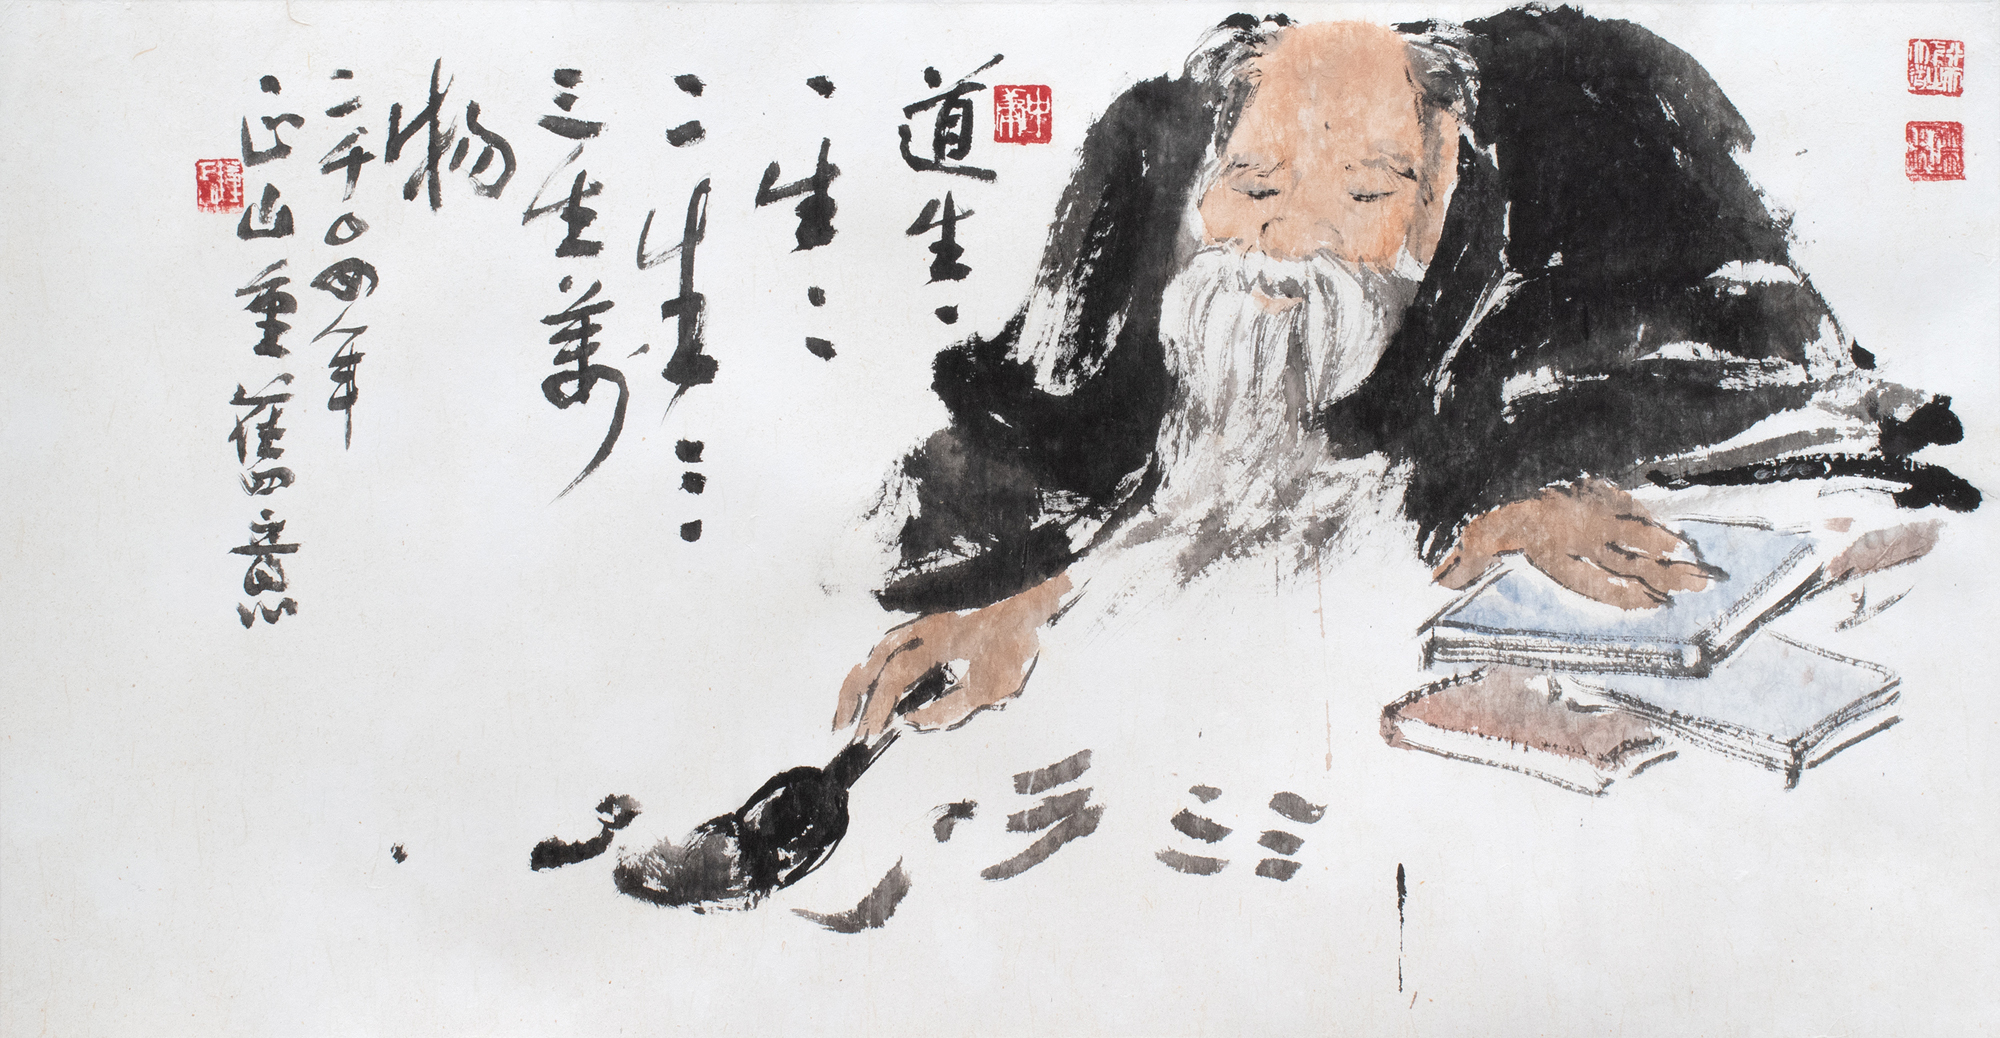 中庸
道生一
一生二
二生三
三生萬
物
二千〇四年
正山重舊意